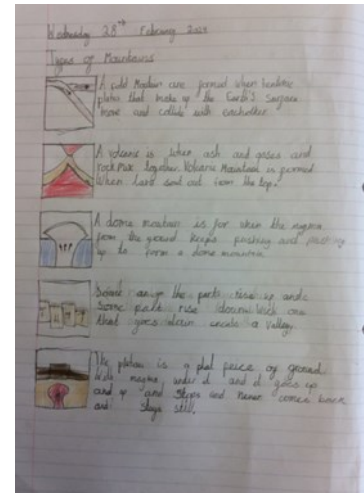 Wednesday 28th February
Types of Mountains
A fold Mountain are formed when
plates that make up the Earth's surface
move and collide with eachother.
A volcano is when ash and gases and
rock mix together. Volcanic Mountain is formed
When lava sent out from the top.
A dome mountain is for when the magma
from the ground keeps pushing and pushing
up to form a dome mountain.
the parts rise up and
some part rise down
that goes down a valley.
The is a flat piece of ground
with magma under it and it goes up
and up and stops and never comes back
and stays still.